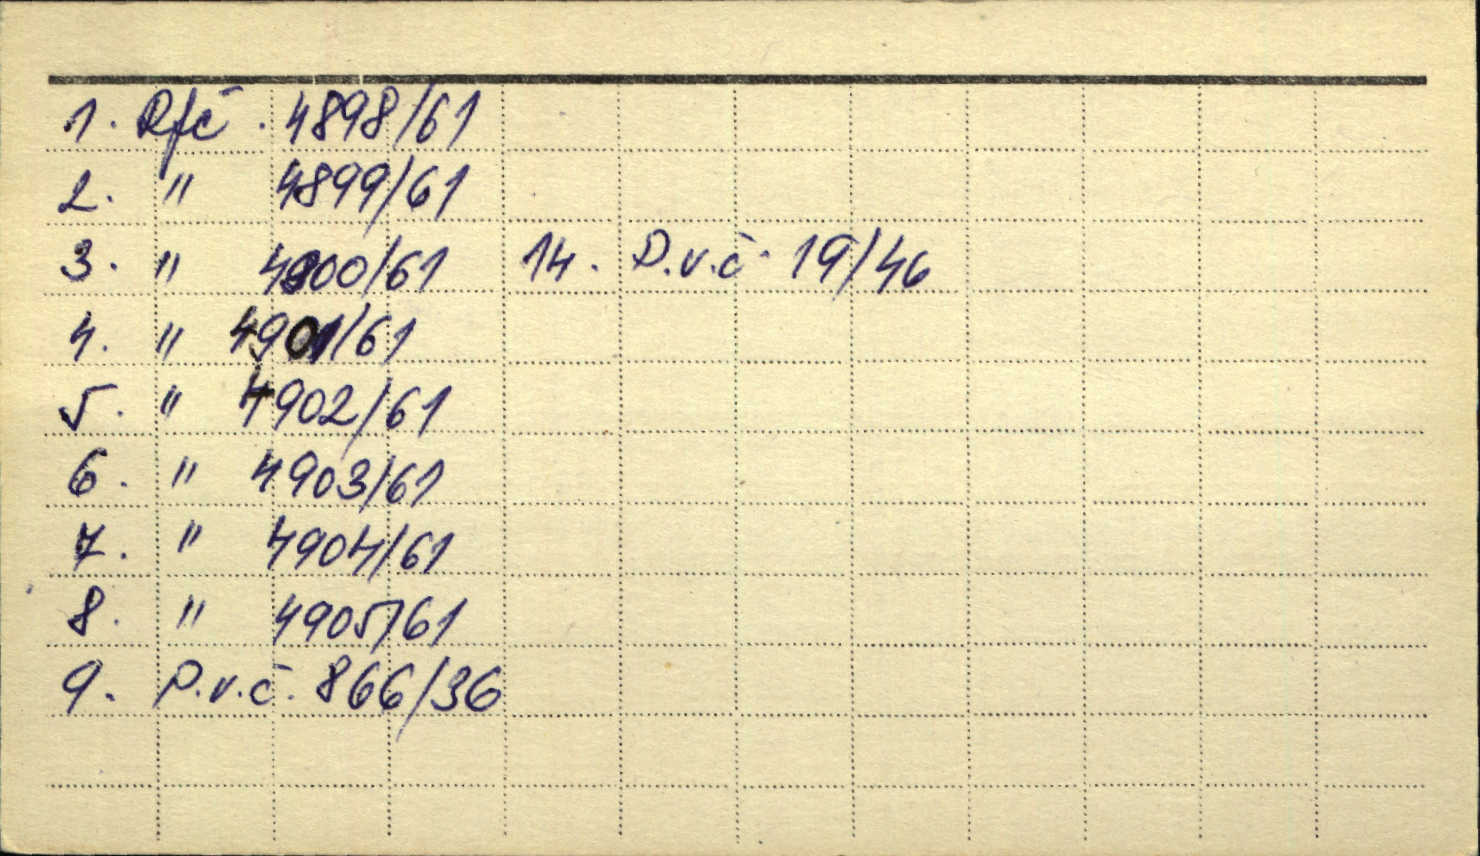 1. Rfč. 4898/61
2. " 4899/61
3. " 4900/61 14. P.v.č. 19/46
4. " 4901/61
5. " 4902/61
6. " 4903/61
7. " 4904/61
8. " 4905/61
9. P.v.č. 866/36